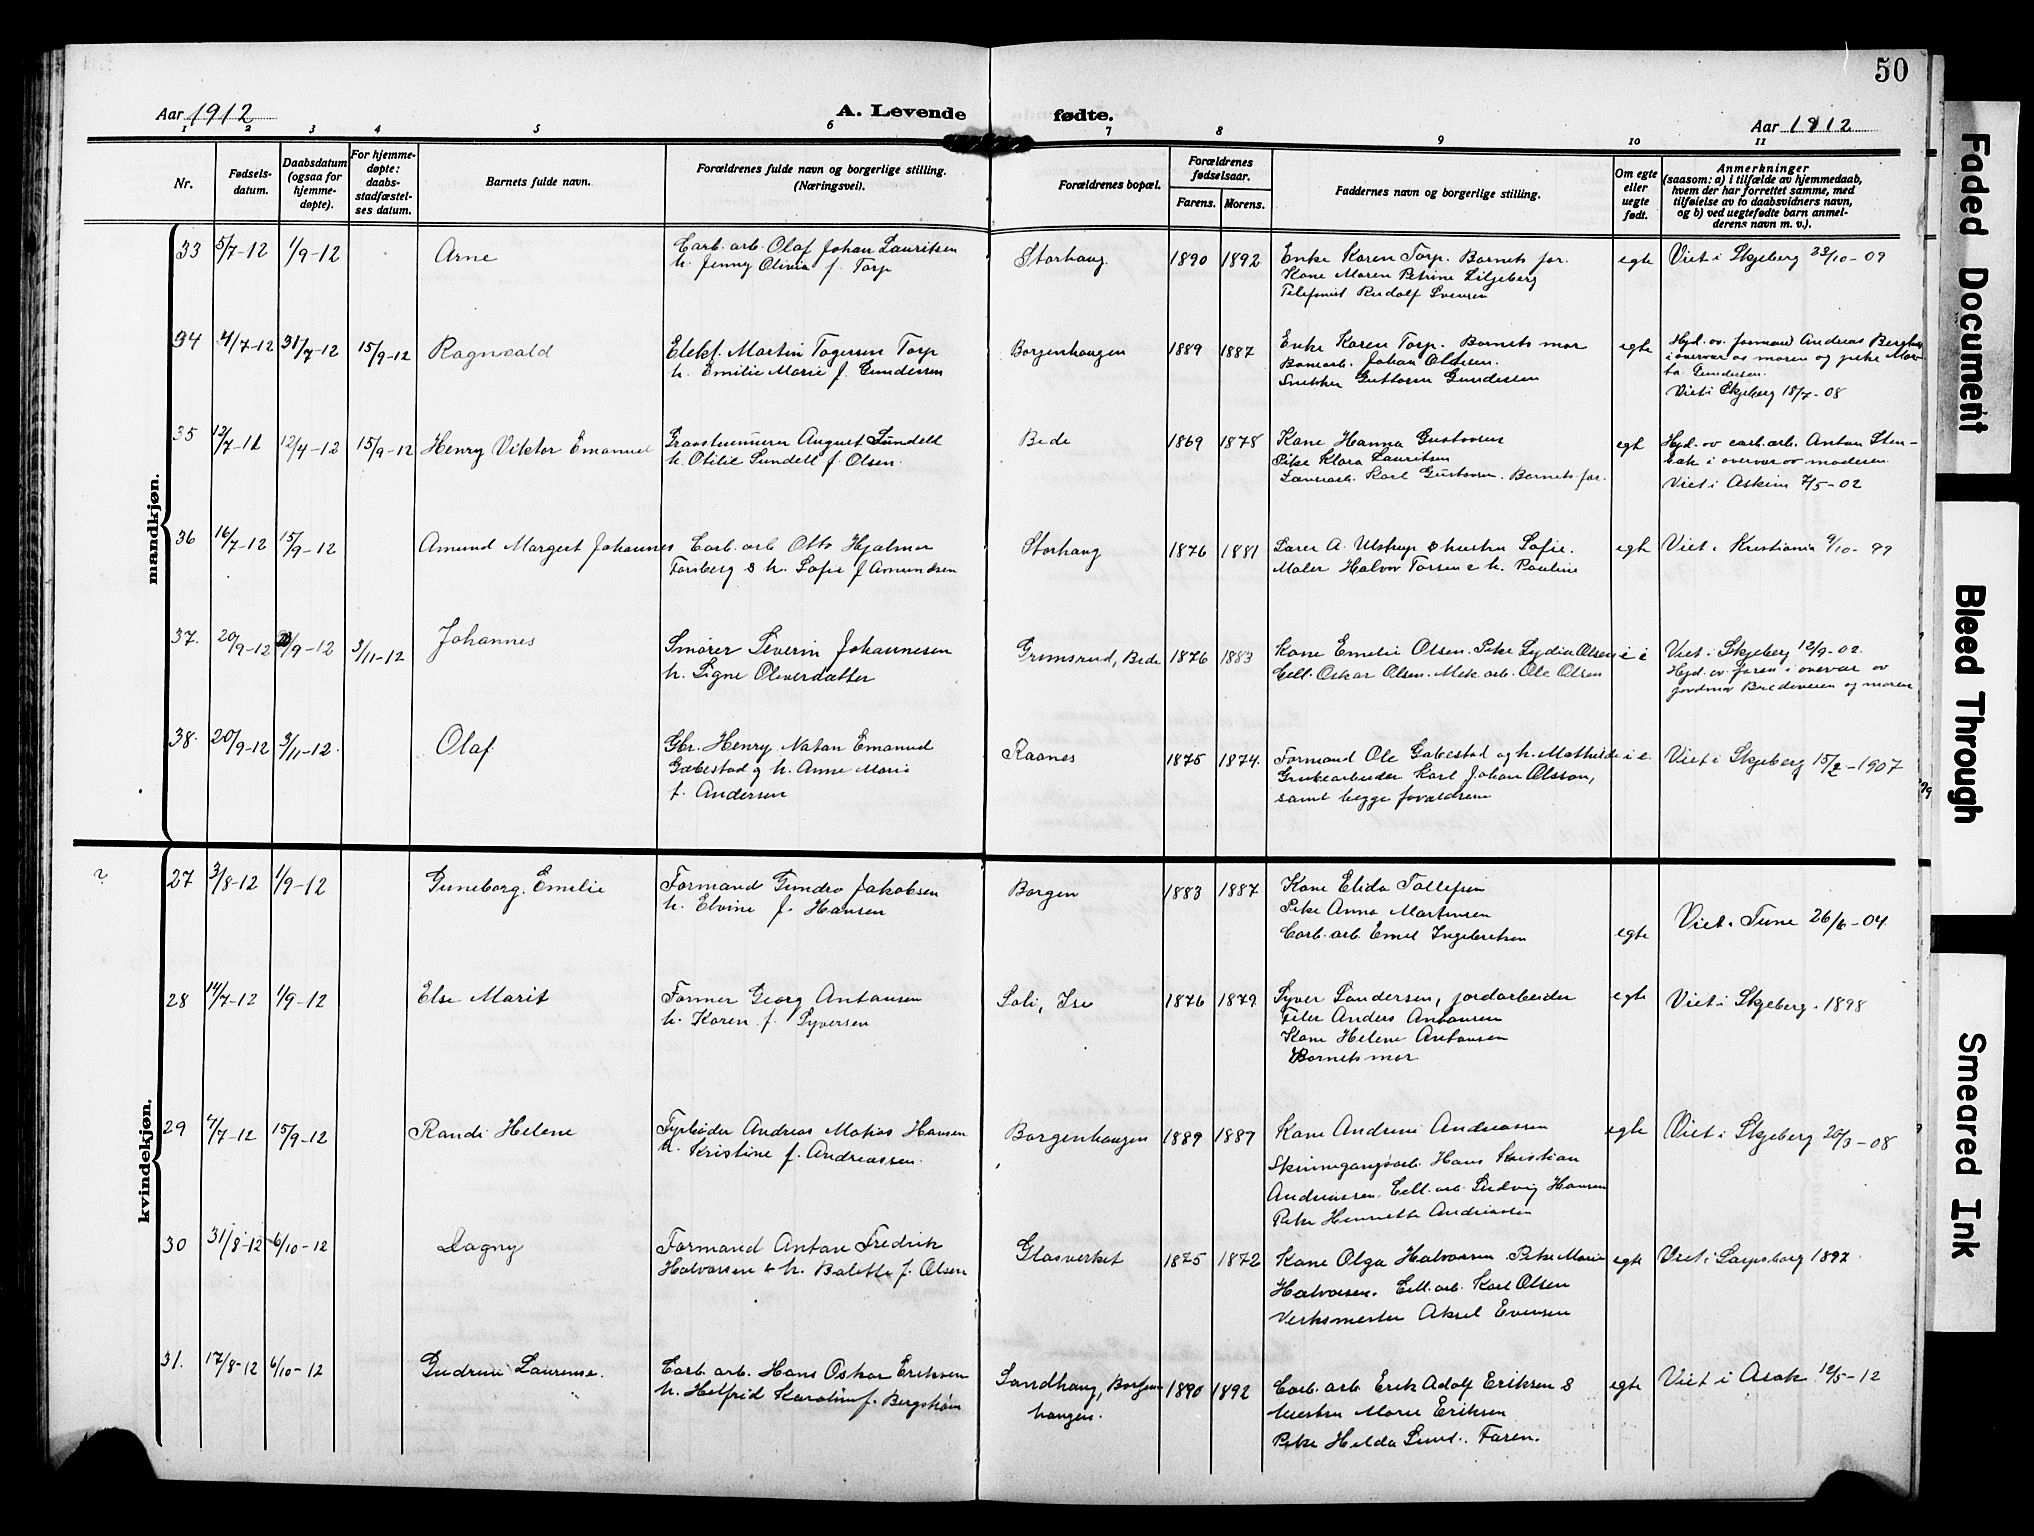 50
Aar 1912
A. Levende fødte.
Aar 1912
1 2 3 4 5 6 7 8 9 10 11
Nr.
Fødsels-
datum.
Daabsdatum
(ogsaa for
hjemme-
døpte).
For hjemme-
døpte:
daabs-
stadfæstel-
ses datum.
Barnets fulde navn.
Forældrenes fulde navn og borgerlige stilling.
(Næringsvei).
Forældrenes bopæl.
Forældrenes
fødselsaar.
Farens. Morens.
Faddernes navn og borgerlige stilling.
Om egte
eller
uegte
født.
Anmerkninger
(saasom: a) i tilfælde av hjemmedaab,
hvem der har forrettet samme, med
tilføielse av to daabsvidners navn,
og b) ved uegtefødte barn anmel-
derens navn m. v.).
mandkjøn.
33 5/7-12 1/9-12 Arne
Carb. arb. Olaf Johan Lauritsen
h. Jenny Olivia f. Torp
Storhaug 1890 1892
Enke Karen Torp. Barnets far.
Kone Maren Petrine Liljeberg
Telefonist Rudolf Svensen
egte
Viet i Skjeberg 23/10-09
34 4/7-12 31/7-12 15/9-12 Ragnvald
Elekt. Martin Togersen Torp
h. Emilie Marie f. Gundersen
Borgenhaugen 1889 1887
Enke Karen Torp. Barnets mor
Banearb. Johan Olsen.
Snekker Guttorm Gundersen
egte
Hjd. av formand Andreas
i overvær av moren og pike Mar-
ta Gundersen.
Viet i Skjeberg 18/7-08
35 12/7-11 12/4-12 15/9-12 Henry Viktor Emanuel
Graastensmurer August Sundell
h. Otilie Sundell f. Olsen.
Bede 1869 1878
Kone Hanna Gustavsen
Pike Klara Lauritsen
Karl Gustavsen. Barnets far.
egte
Hjd. av carb. arb. Anton Sten-
bæk i overvær av moderen
Viet i Askim 7/5-02
36 16/7-12 15/9-12 Amund Margert Johannes
Carb. arb Otto Hjalmar
Forsberg & h. Sofie f Amundsen
Storhaug 1876 1881
Lærer A. Ulstrup & hustru Sofie.
Maler Halvor Torsen & h. Pauline
egte
Viet i Kristiania 9/10-99
37. 20/9-12 /9-12 3/11-12 Johannes
Smører Severin Johannesen
h. Signe Oliversdatter
Grimsrud, Bede 1876 1883
Kone Emelie Olsen. Pike Lydia Olsen
Cell. Oskar Olsen. Mek. arb. Ole Olsen
i e
Viet i Skjeberg 12/9-02.
Hjd. av faren i overvær av
jordmor Bredevesen og moren
38. 20/9-12 3/11-12. Olaf
Gbr. Henry Natan Emanuel
Gabestad g h. Anne Marie
f. Andersen
Raanes 1875 1874.
Formand Ole Gabestad og h. Mathilde
Grubearbeider Karl Johan Olsson,
samt begge forældrene
i e.
Viet i Skjeberg 15/2-1907
kvindekjøn.
?
27 3/8-12 1/9-12 Guneborg Emelie
Formand Gundro Jakobsen
h. Elvine f. Hansen
Borgen 1883 1887
Kone Elida Tollefsen
Pike Anna Martinsen
Carb. arb. Emil Ingebretsen
egte
Viet i Tune 26/6-04
28 14/7-12 1/9-12 Else Marit
Former Georg Antonsen
h. Karen f. Syversen
Soli, Ise 1876 1879
Syver Sandersen, jordarbeider
Filer Anders Antonsen
Kone Helene Antonsen
Barnets mor
egte
Viet i Skjeberg. 1898
29 7/7-12 15/9-12 Randi Helene
Fyrbøder Andreas Matias Hansen
h. Kristine f. Andreassen.
Borgenhaugen 1889 1887
Kone Andrine Andreassen
Skinnegangsarb. Hans Kristian
Andreassen. Cell. arb. Ludvig Hansen
Pike Henriette Andreassen
egte
Viet i Skjeberg 20/3-08
30 31/8-12 6/10-12 Dagny
Formand Anton Fredrik
Halvorsen & h. Balette f. Olsen
Glasverket 1875 1872
Kone Olga Halvorsen. Pike Marie
Halvorsen. Cell. arb. Karl Olsen
Verksmester Aksel Evensen
egte
Viet i Sarpsborg 1897
31. 17/8-12 6/10-12 Gudrun Laurense.
Carb. arb. Hans Oskar Eriksen
h. Helfrid Karoline f. Bergstrøm
Sandhaug, Borgen
haugen. 1890 1892
Carb. arb. Erik Adolf Eriksen &
hustru Marie Eriksen
Pike Helda Lund. Faren.
egte
Viet i Asak 12/5-12
Faded Document
Bleed Through
Smeared Ink